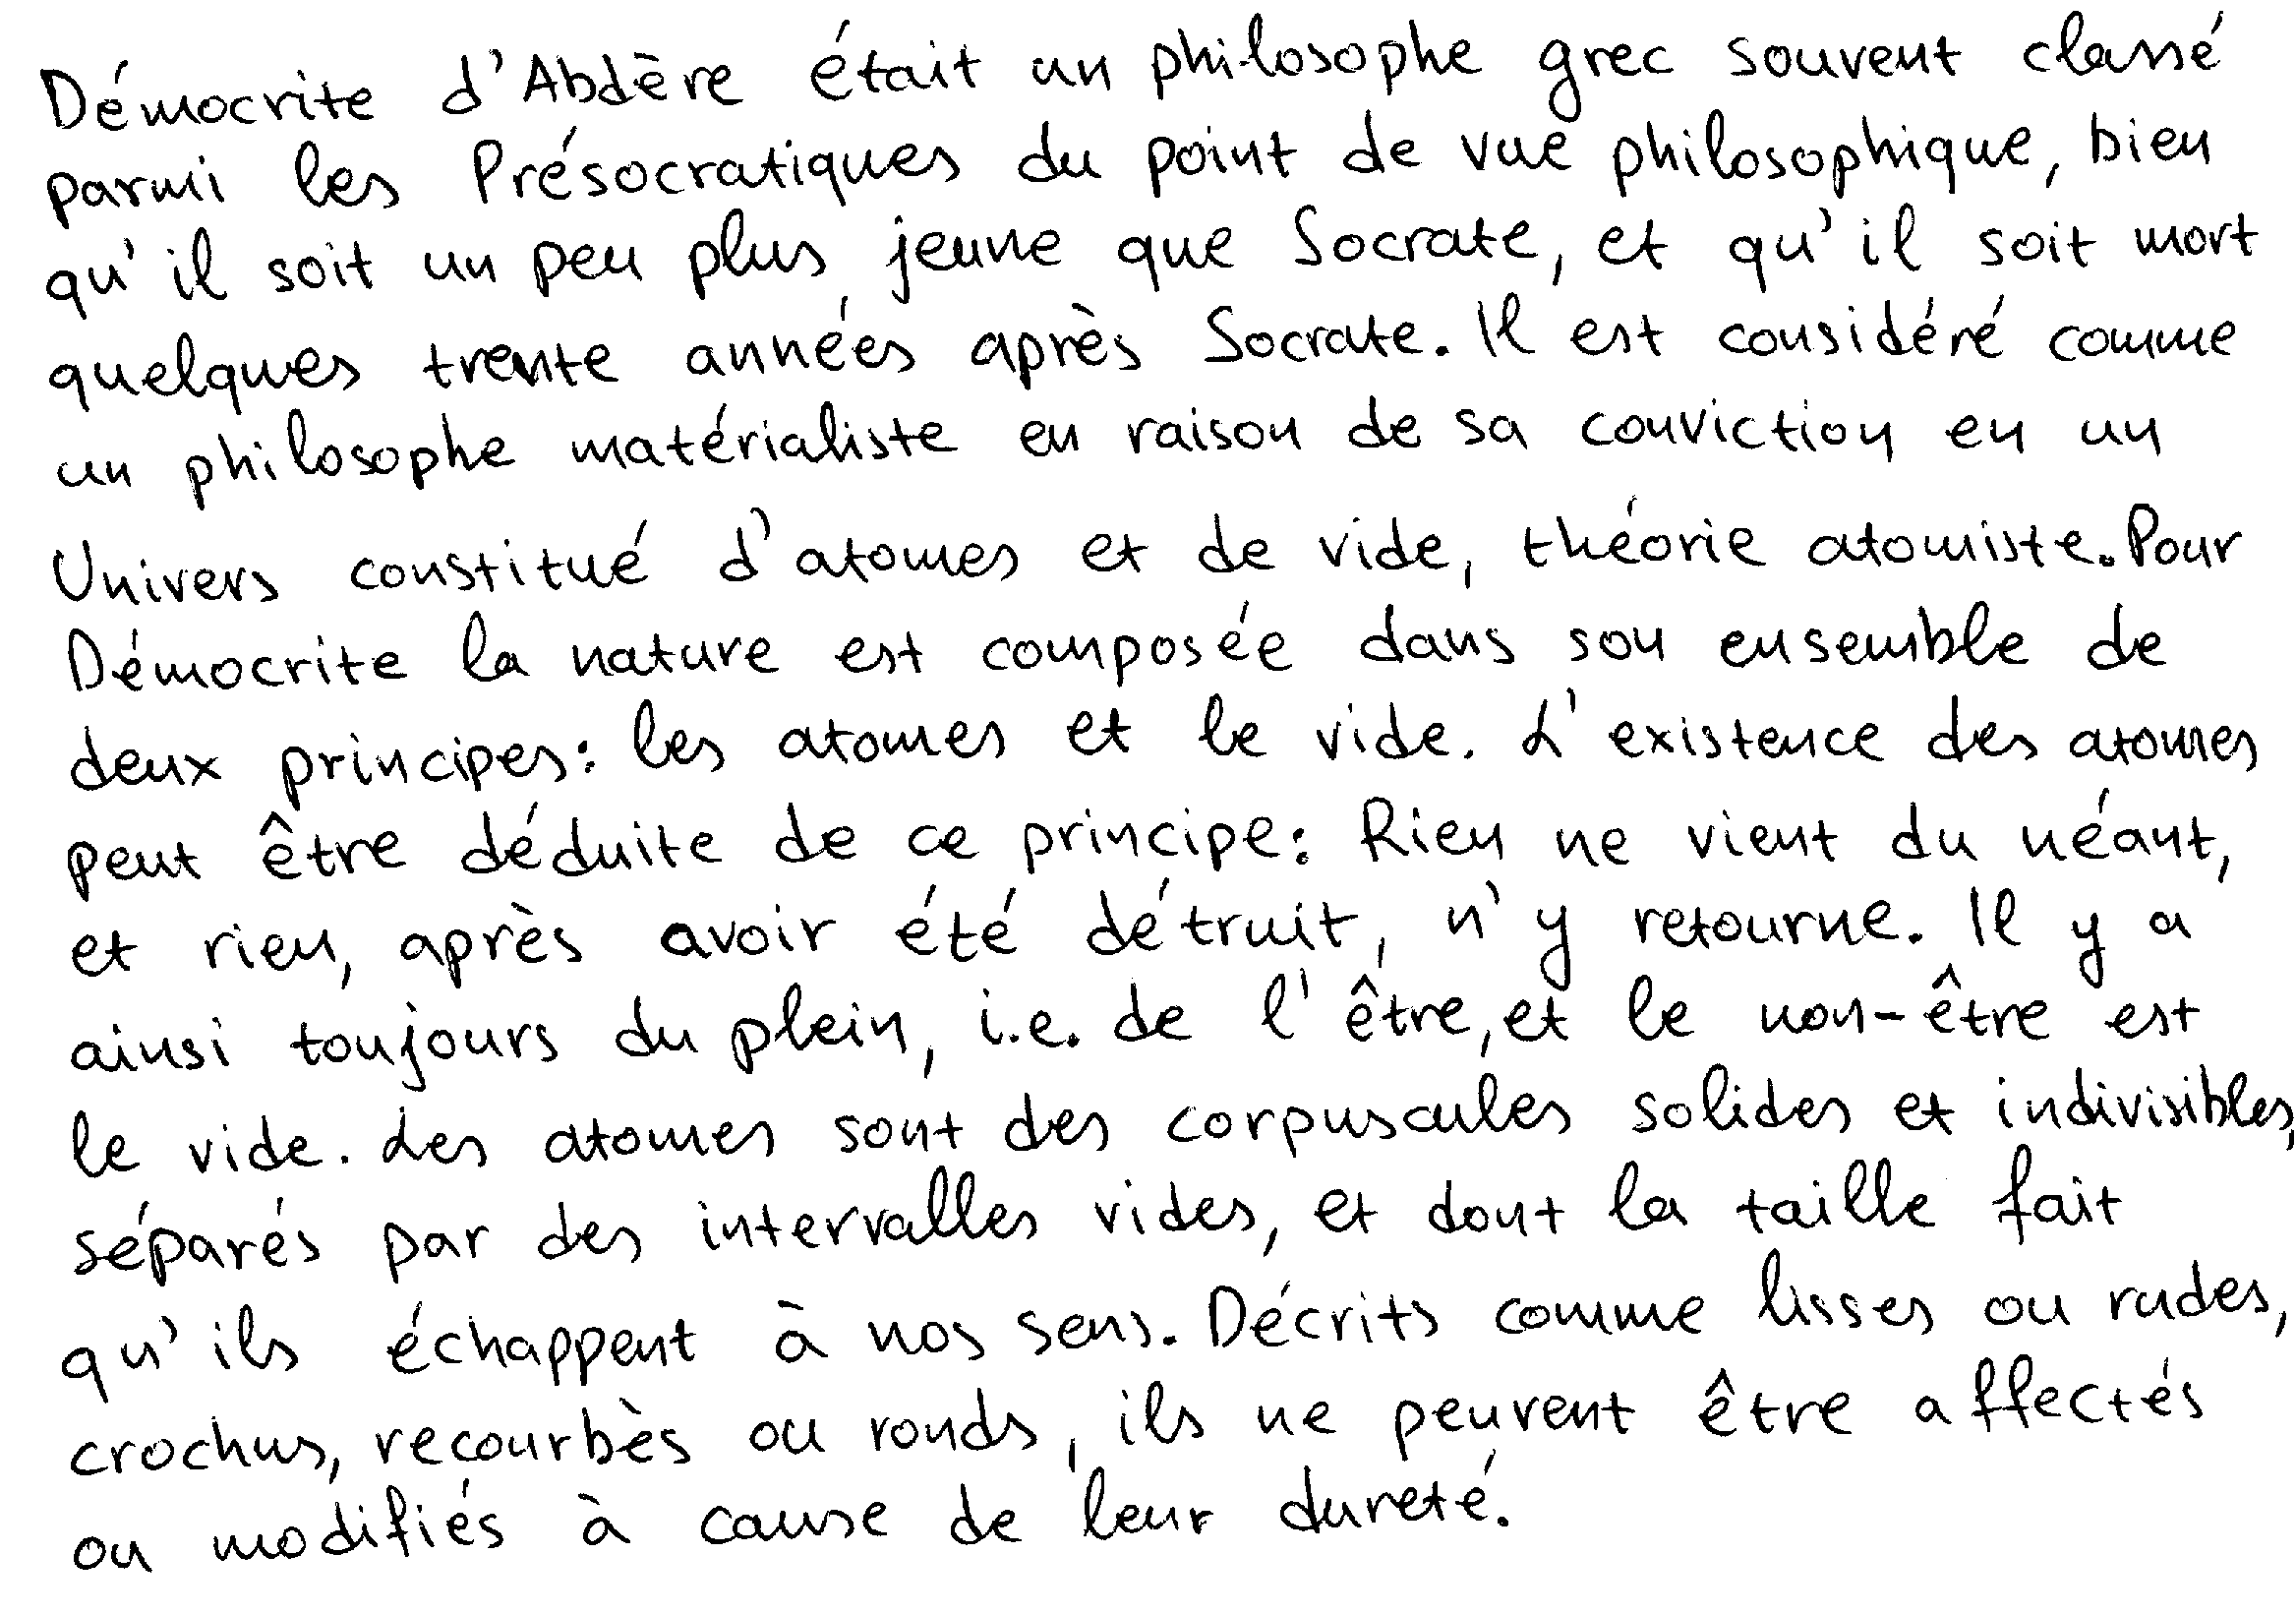 Démocrite d'Abdère était un philosophe grec souvent classé
parmi les Présocratiques du point de vue philosophique, bien
qu'il soit un peu plus jeune que Socrate, et qu'il soit mort
quelques trente années après Socrate. Il est considéré comme
un philosophe matérialiste en raison de sa conviction en un
Univers constitué d'atomes et de vide, théorie atomiste. Pour
Démocrite la nature est composée dans son ensemble de
deux principes: les atomes et le vide. L'existence des atomes
peut être déduite de ce principe: Rien ne vient du néant,
et rien, après avoir été détruit, n'y retourne. Il y a
ainsi toujours du plein, i.e. de l'être, et le non-être est
le vide. Les atomes sont des corpuscules solides et indivisibles,
séparés par des intervalles vides, et dont la taille fait
qu'ils échappent à nos sens. Décrits comme lisses ou rudes,
crochus, recourbès ou ronds, ils ne peuvent être affectés
ou modifiés à cause de leur dureté.